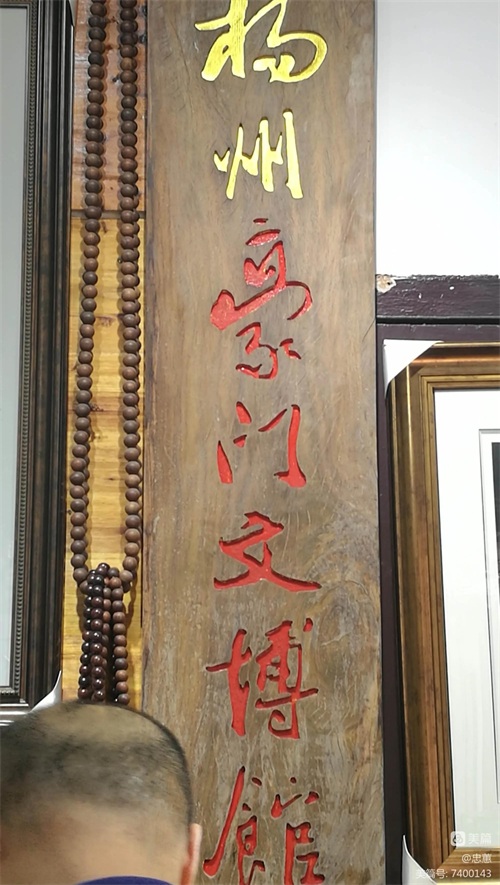 杨州豪门文博館
美篇
@忠蕙
美篇号: 7400143